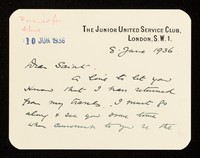 10 JUN 1936
THE JUNIOR UNITED SERVICE CLUB,
LONDON, S.W. 1.
8 June 1936
Dear
A line to let you
know that I have returned
from my travels. I must go
along & see you some time
when convenient to you in the